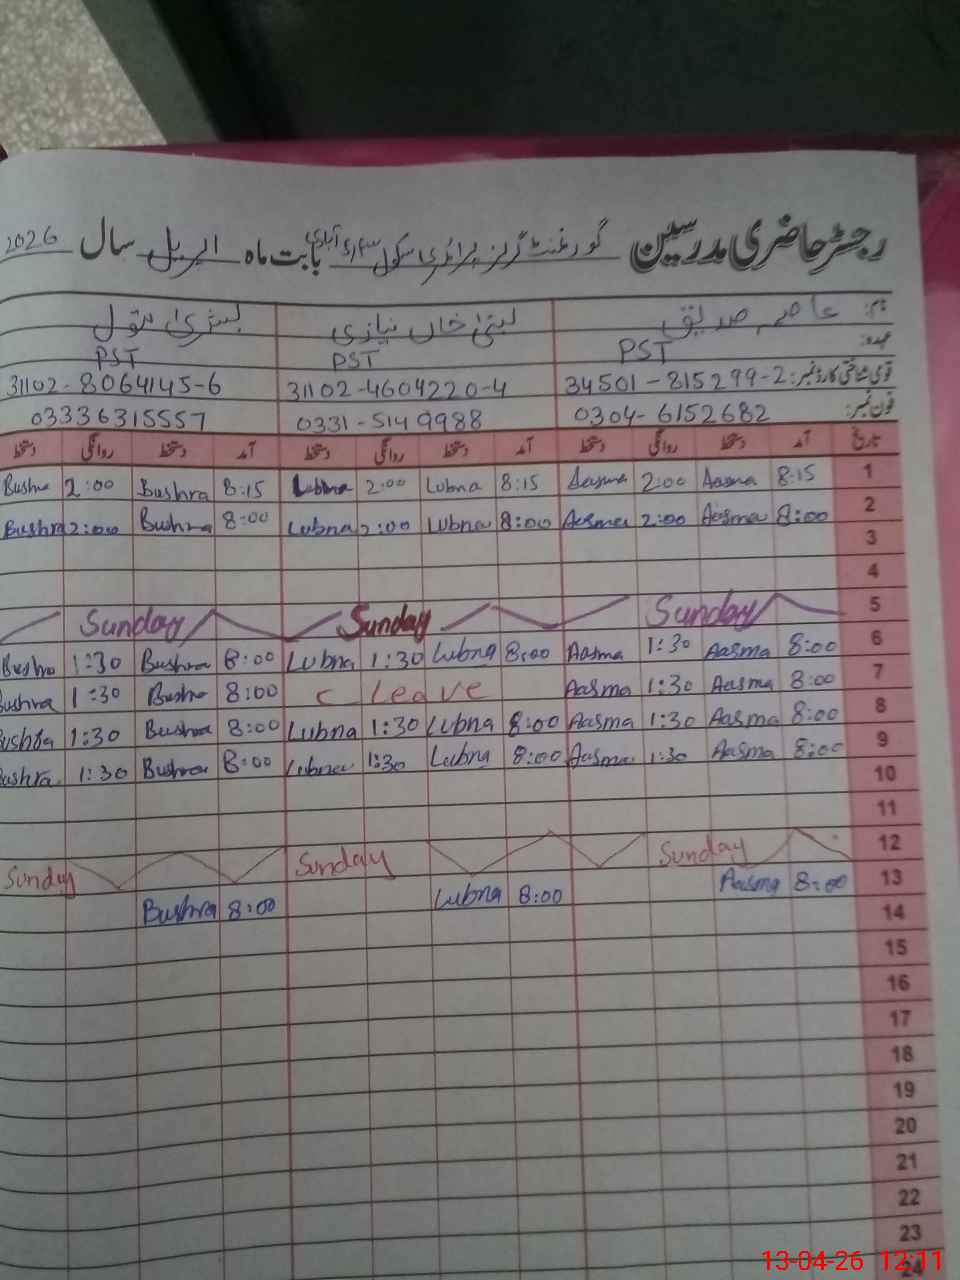 رجسٹر حاضری مدرسین گورنمنٹ گرلز پرائمری سکول بابت ماہ اپریل سال 2026
نام: عاصمہ صدیق لبنیٰ خان نیازی بشریٰ بتول
عہدہ: PST PST PST
قومی شناختی کارڈ نمبر: 34501-815299-2 31102-4604220-4 31102-8064145-6
فون نمبر: 0304-6152682 0331-5149988 03336315557
تاریخ آمد دستخط روانگی دستخط آمد دستخط روانگی دستخط آمد دستخط روانگی دستخط
Bushra 2:00 Bushra 8:15 Lubna 2:00 Lubna 8:15 Aasma 2:00 Aasma 8:15 1
Bushra 2:00 Bushra 8:00 Lubna 2:00 Lubna 8:00 Aasma 2:00 Aasma 8:00 2
3
4
Sunday Sunday Sunday 5
Bushra 1:30 Bushra 8:00 Lubna 1:30 Lubna 8:00 Aasma 1:30 Aasma 8:00 6
Bushra 1:30 Bushra 8:00 C Leave Aasma 1:30 Aasma 8:00 7
Bushra 1:30 Bushra 8:00 Lubna 1:30 Lubna 8:00 Aasma 1:30 Aasma 8:00 8
Bushra 1:30 Bushra 8:00 Lubna 1:30 Lubna 8:00 Aasma 1:30 Aasma 8:00 9
10
11
Sunday Sunday Sunday 12
Bushra 8:00 Lubna 8:00 Aasma 8:00 13
14
15
16
17
18
19
20
21
22
23
24
13-04-26 12:11